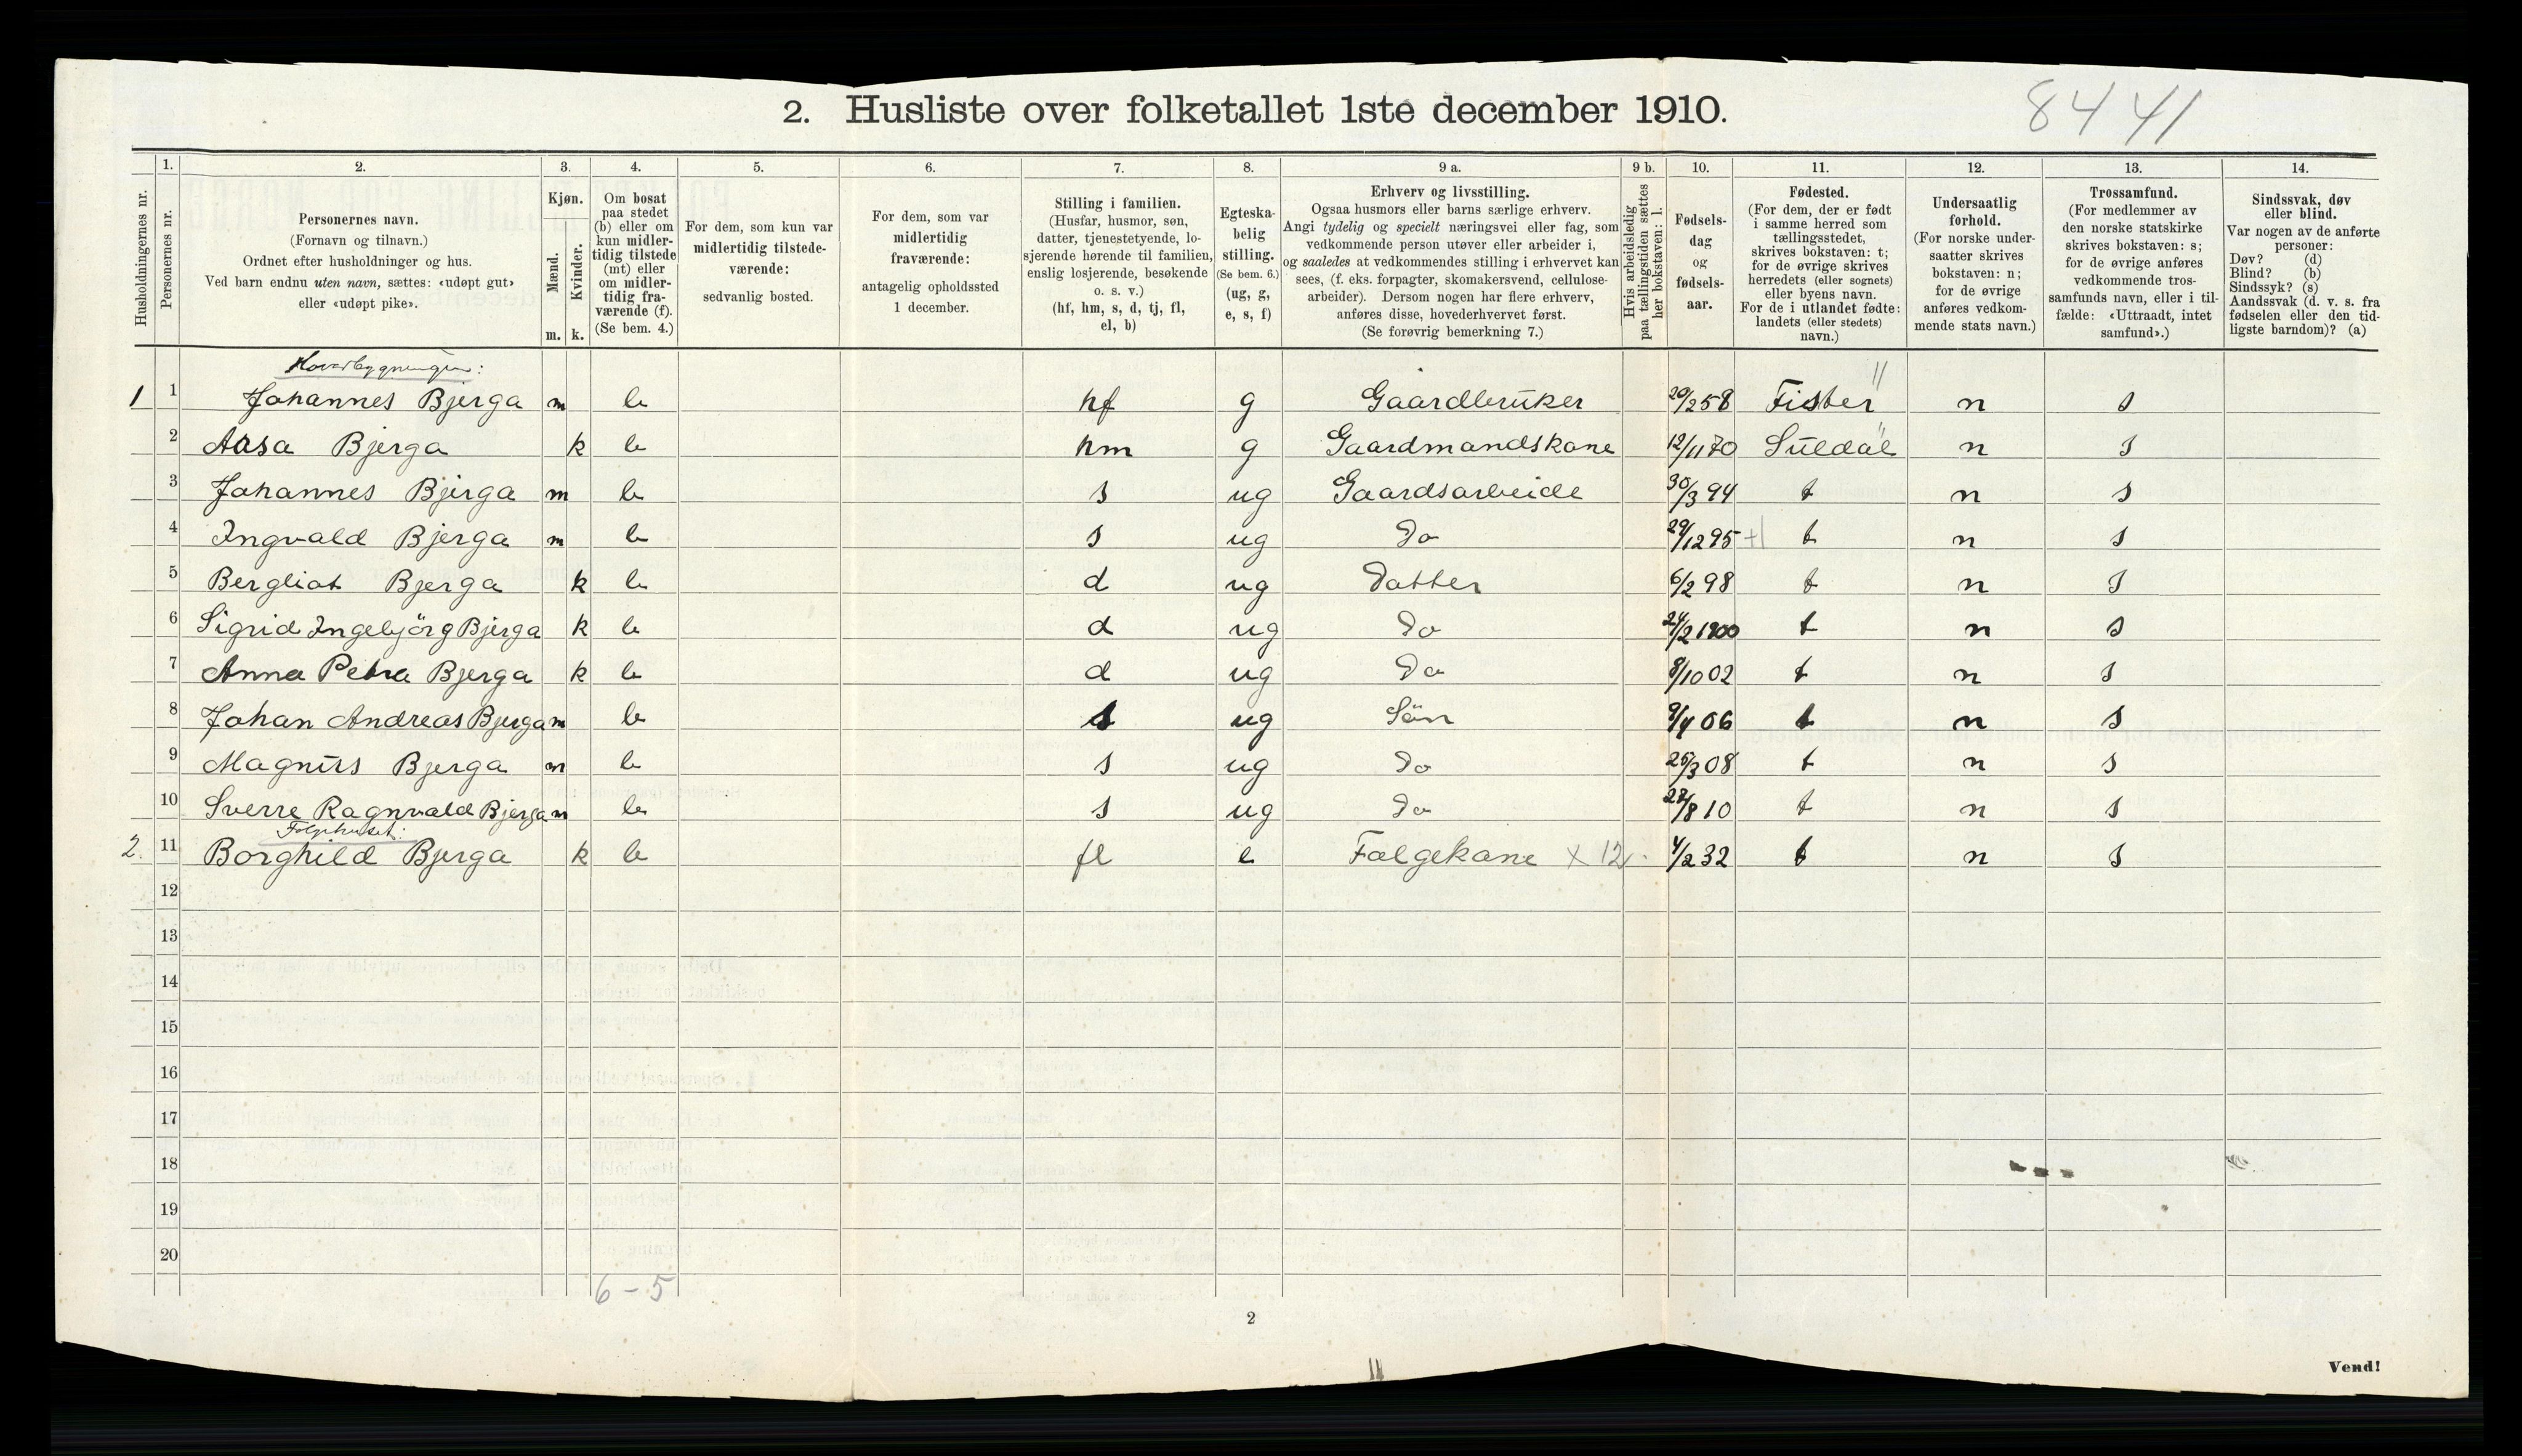 2. Husliste over folketallet 1ste december 1910.
8441
Husholdningernes nr.
1.
Personernes nr.
2.
Personernes navn.
(Fornavn og tilnavn.)
Ordnet efter husholdninger og hus.
Ved barn endnu uten navn, sættes: «udøpt gut»
eller «udøpt pike».
3.
Kjøn.
Mænd.
Kvinder.
m. k.
4.
Om bosat
paa stedet
(b) eller om
kun midler-
tidig tilstede
(mt) eller
om midler-
tidig fra-
værende (f).
(Se bem. 4.)
5.
For dem, som kun var
midlertidig tilstede-
værende:
sedvanlig bosted.
6.
For dem, som var
midlertidig
fraværende:
antagelig opholdssted
1 december.
7.
Stilling i familien.
(Husfar, husmor, søn,
datter, tjenestetyende, lo-
sjerende hørende til familien,
enslig losjerende, besøkende
o. s. v.)
(hf, hm, s, d, tj, fl,
el, b)
8.
Egteska-
belig
stilling.
(Se bem. 6.)
(ug, g,
e, s, f)
9 a.
Erhverv og livsstilling.
Ogsaa husmors eller barns særlige erhverv.
Angi tydelig og specielt næringsvei eller fag, som
vedkommende person utøver eller arbeider i,
og saaledes at vedkommendes stilling i erhvervet kan
sees, (f. eks. forpagter, skomakersvend, cellulose-
arbeider). Dersom nogen har flere erhverv,
anføres disse, hovederhvervet først.
(Se forøvrig bemerkning 7.)
9 b.
Hvis arbeidsledig
paa tællingstiden sættes
her bokstaven: l.
10.
Fødsels-
dag
og
fødsels-
aar.
11.
Fødested.
(For dem, der er født
i samme herred som
tællingsstedet,
skrives bokstaven: t;
for de øvrige skrives
herredets (eller sognets)
eller byens navn.
For de i utlandet fødte:
landets (eller stedets)
navn.)
12.
Undersaatlig
forhold.
(For norske under-
saatter skrives
bokstaven: n;
for de øvrige
anføres vedkom-
mende stats navn.)
13.
Trossamfund.
(For medlemmer av
den norske statskirke
skrives bokstaven: s;
for de øvrige anføres
vedkommende tros-
samfunds navn, eller i til-
fælde: «Uttraadt, intet
samfund».)
14.
Sindssvak, døv
eller blind.
Var nogen av de anførte
personer:
Døv? (d)
Blind? (b)
Sindssyk? (s)
Aandssvak (d. v. s. fra
fødselen eller den tid-
ligste barndom)? (a)
Hovedbygningen:
1 1 Johannes Bjerga m b hf g Gaardbruker 20/2 58 Fister " n s
2 Aasa Bjerga k b hm g Gaardmandskone 12/11 70 Suldal " n s
3 Johannes Bjerga m b s ug Gaardsarbeide 30/3 94 t n s
4 Ingvald Bjerga m b s ug Do 29/12 95 +1 t n s
5 Bergliot Bjerga k b d ug Datter 6/2 98 t n s
6 Sigrid Ingebjörg Bjerga k b d ug Do 24/2 1900 t n s
7 Anna Petra Bjerga k b d ug Do 8/10 02 t n s
8 Johan Andreas Bjerga m b s ug Sön 9/4 06 t n s
9 Magnus Bjerga m b s ug Do 25/3 08 t n s
10 Sverre Ragnvald Bjerga m b s ug Do 28/8 10 t n s
Folgehuset:
2. 11 Borghild Bjerga k b fl e Folgekone x 12 4/2 32 t n s
12
13
14
15
16
17
18
19
20
6 - 5
2
Vend!